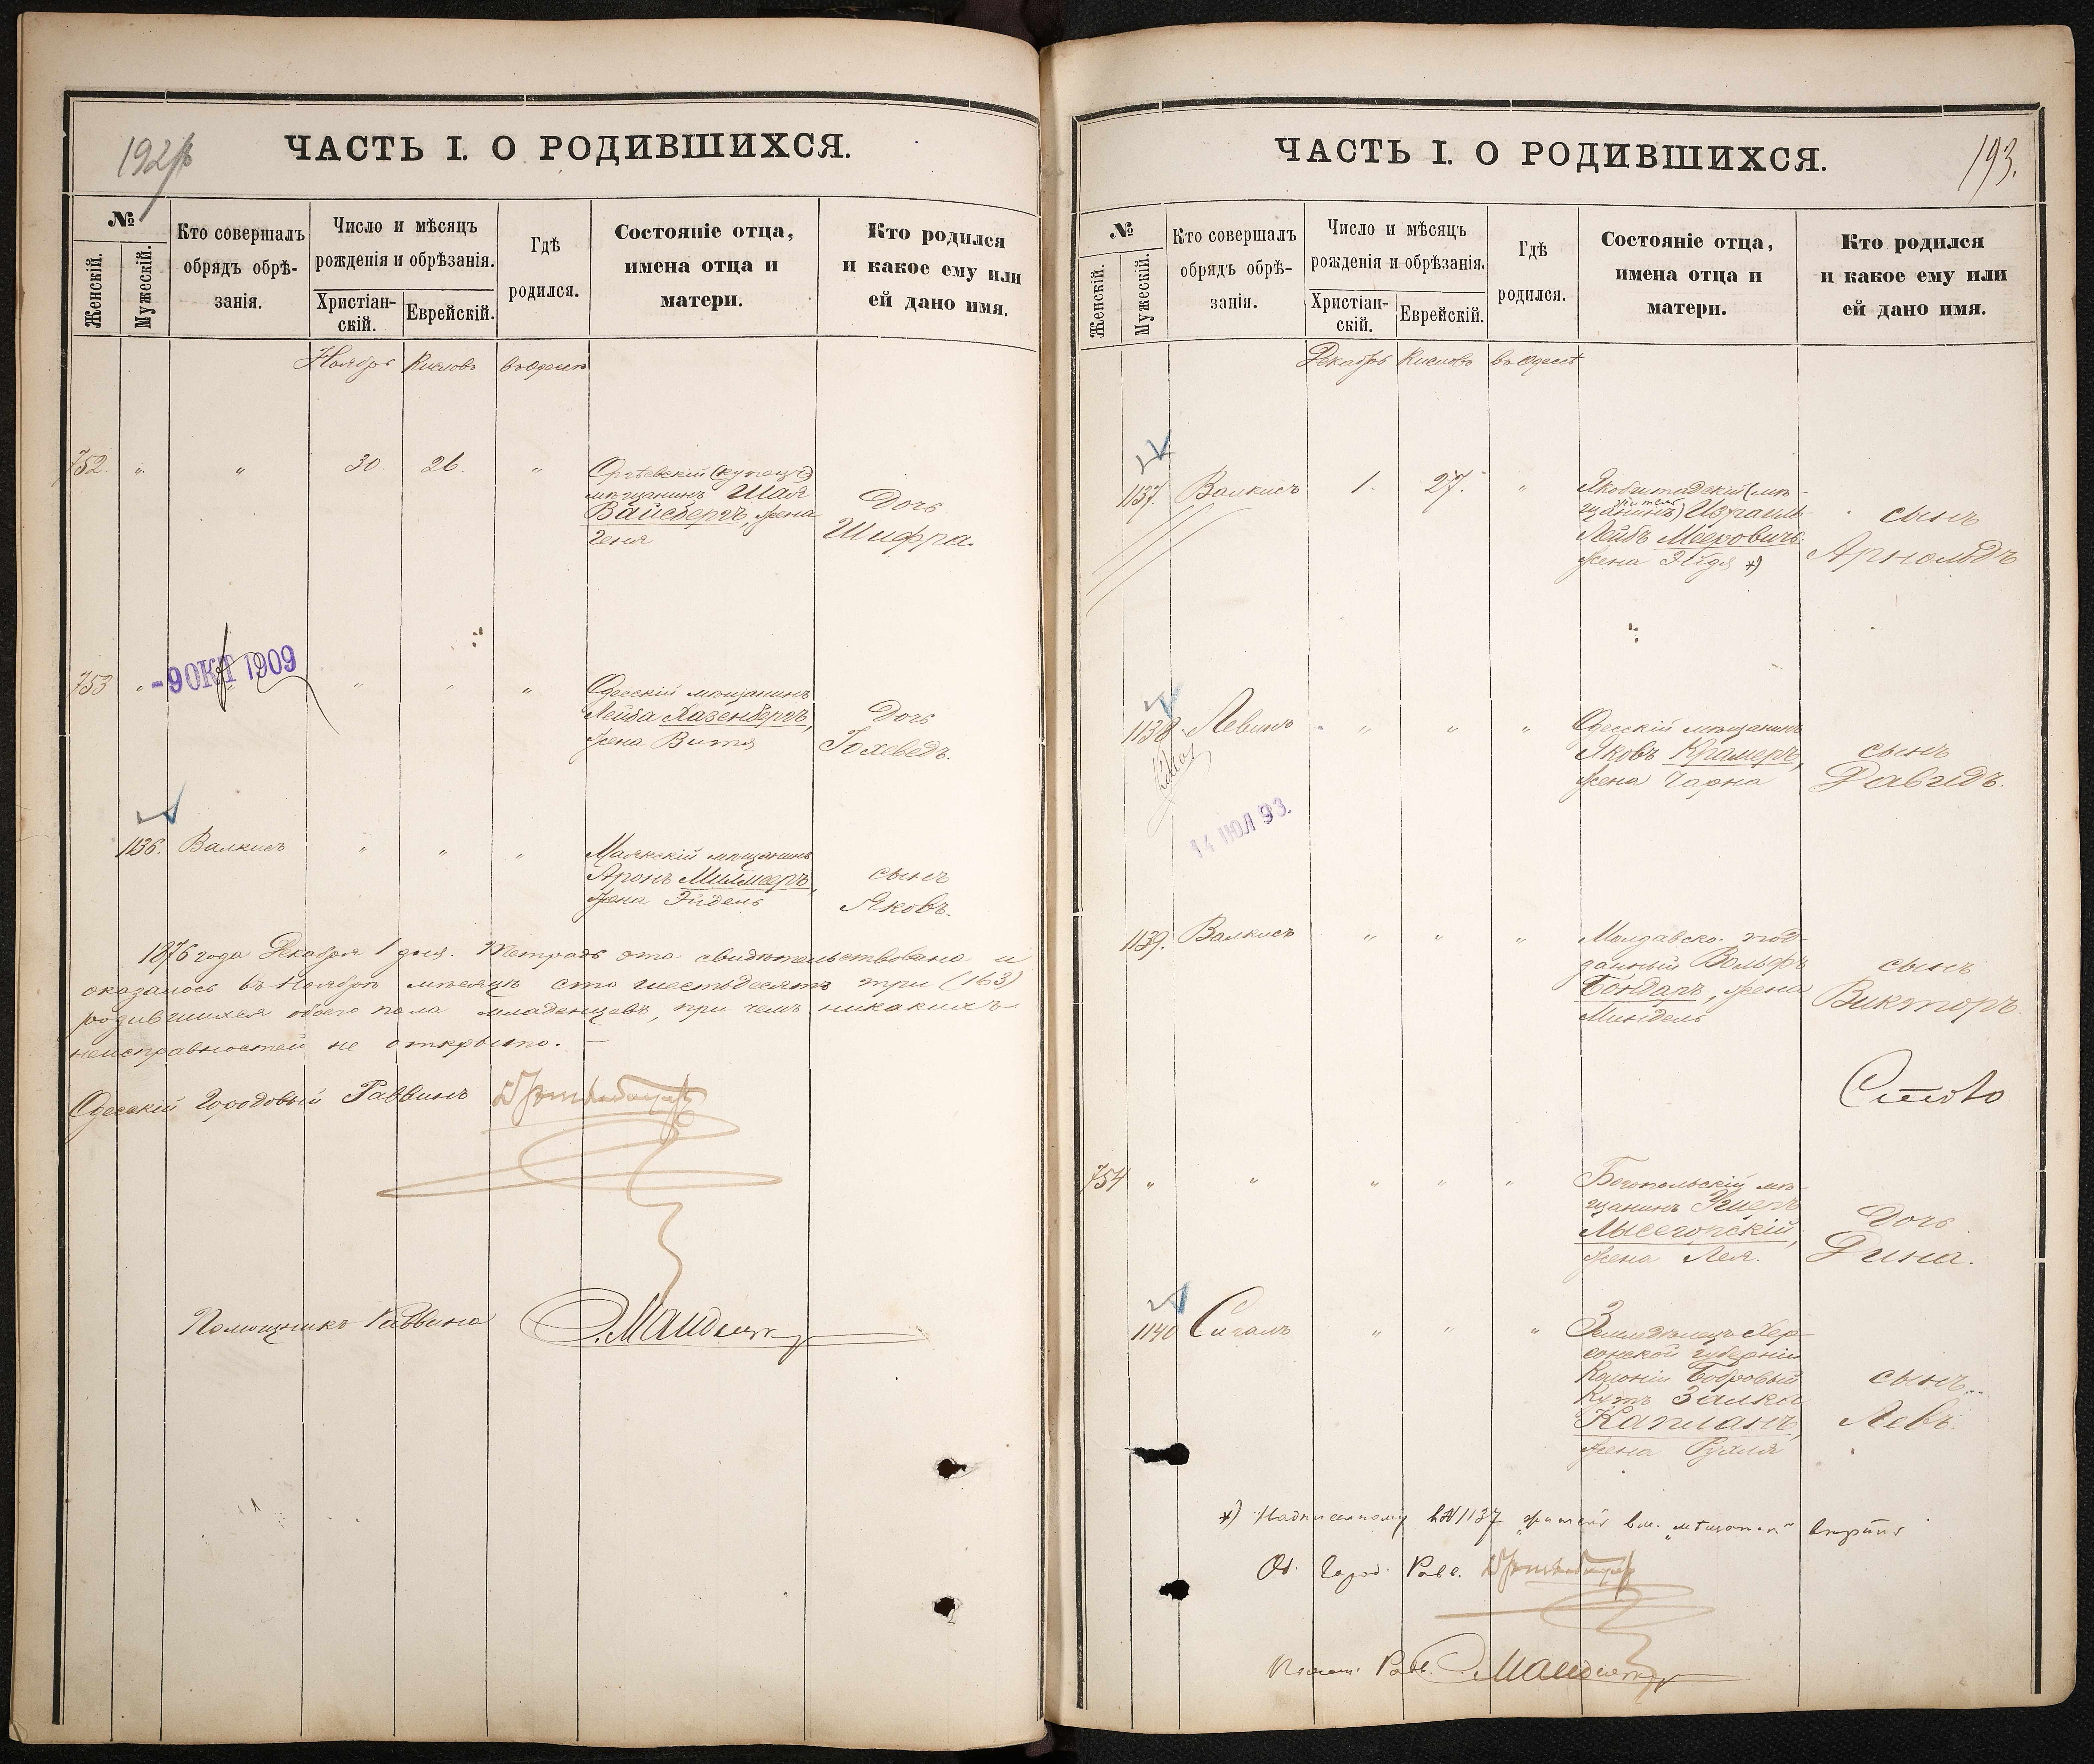 192
ЧАСТЬ I. О РОДИВШИХСЯ.
№
Женскій.
Мужескій.
Кто совершалъ
обрядъ обрѣ-
занія.
Число и мѣсяцъ
рожденія и обрѣзанія.
Христіан-
скій.
Еврейскій.
Гдѣ
родился.
Состояніе отца,
имена отца и
матери.
Кто родился
и какое ему или
ей дано имя.
Ноябрь Кислевъ въ Одессѣ
752. " " 30. 26. "
Оргѣевскій (купецъ)
мѣщанинъ Шая
Вайсбергъ, жена
Геня
Дочь
Шифра.
-9 ОКТ 1909
753 " " " "
Одесскій мѣщанинъ
Лейба Хазенбергъ,
жена Витя
Дочь
Іохеведъ.
1136. Валкисъ " " "
Маякскій мѣщанинъ
Аронъ Миллеръ,
жена Эйдель
сынъ
Яковъ.
1876 года Декабря 1 дня. Тетрадь эта свидѣтельствована и
оказалось въ Ноябрѣ мѣсяцѣ сто шестьдесятъ три (163)
родившихся обоего пола младенцевъ, при чемъ никакихъ
неисправностей не открыто. —
Одесскій Городовый Раввинъ
Помощникъ Раввина
ЧАСТЬ I. О РОДИВШИХСЯ.
193.
№
Женскій.
Мужескій.
Кто совершалъ
обрядъ обрѣ-
занія.
Число и мѣсяцъ
рожденія и обрѣзанія.
Христіан-
скій.
Еврейскій.
Гдѣ
родился.
Состояніе отца,
имена отца и
матери.
Кто родился
и какое ему или
ей дано имя.
Декабрь Кислевъ въ Одессѣ
1137. Валкисъ 1. 27. "
Якобштадскій (мѣ-
житель
щанинъ) Израиль-
Лейбъ Мееровичъ
жена Эйдя *)
сынъ
Арнольдъ
1138 Левинъ " " "
Одесскій мѣщанинъ
Яковъ Крамеръ,
жена Чарна
сынъ
Давидъ.
14 ІЮЛ 93.
1139. Валкисъ " " "
Молдавско-под-
данный Вольфъ
Бондарь, жена
Миндель
сынъ
Викторъ.
754 " " " " "
Богопольскій мѣ-
щанинъ
Лысегорскій,
жена Лея.
Дочь
Дина.
1140 Сигалъ " " "
Земледѣлецъ Хер-
сонской губерніи
Колоніи Бобровый
Кутъ Залкa
Капланъ,
жена Рухля
сынъ
Левъ.
*) Надписанному въ № 1137 „житель" вм. „мѣщанинъ" вѣрить
Од. Город. Равв.
Помощ. Равв.